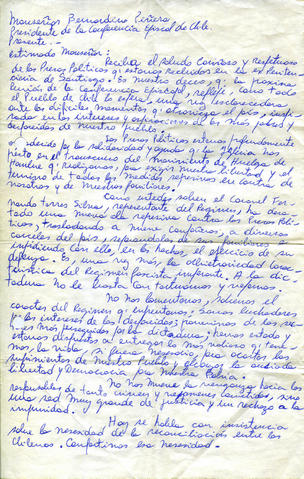 Monseñor Bernardino Piñera
Presidente de la Conferencia Episcopal de Chile
Presente.-
Estimado Monseñor:
Reciba el saludo cariñoso y respetuoso
de los Presos Políticos q. estamos recluidos en la ex Peniten
ciaría de Santiago. Es nuestro deseo, q. la próxima
reunión de la Conferencia Episcopal, refleje, como todo
el Pueblo de Chile lo espera, una voz esclarecedora
ante los difíciles momentos q. atraviesa el país, inspi
rada en los intereses y aspiraciones de los más pobres y
desposeídos de nuestro pueblo.
Los Presos Políticos estamos profundamente
agradecidos por la solidaridad y ayuda q. la Iglesia nos
prestó en el transcurso del movimiento de Huelga de
Hambre q. realizamos por exigir nuestra libertad y el
término de todas las medidas represivas en contra de
nosotros y de nuestros familiares.
Como ustedes saben el Coronel Fer-
nando Torres Silva, representante del Régimen, ha desa
tado una nueva ola represiva contra los Presos Polí
ticos, trasladando a nueve compañeros, a diversas
cárceles del país, separándolos de sus familiares e
impidiendo con ello, en los hechos, el ejercicio de su
defensa. Es, una vez más, la arbitrariedad carac
terística del Régimen fascista imperante. A la dic
tadura no le basta con torturarnos y vejarnos.
No nos lamentamos, sabemos el
carácter del Régimen q. enfrentamos. Somos luchadores
por los intereses de los desposeídos, provenimos de los sec
tores más perseguidos por la dictadura, hemos estado y
estamos dispuestos a entregar lo más valioso q. tene
mos, la vida, si fuera necesario, para acortar los
sufrimientos de nuestro Pueblo y alcanzar la ansiada
libertad y Democracia para nuestra Patria.
No nos mueve la venganza hacia los
responsables de tanto crimen y vejámenes cometidos, sino
una sed muy grande de justicia y un rechazo a la
impunidad.
Hoy se habla con insistencia
sobre la necesidad de la reconciliación entre los
chilenos. Compartimos esa necesidad.